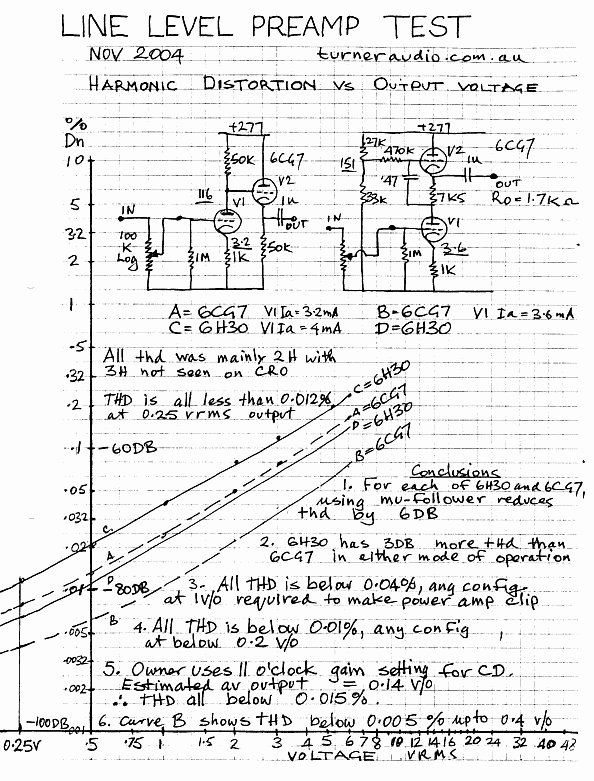 LINE LEVEL PREAMP TEST
NOV 2004 turneraudio.com.au
HARMONIC DISTORTION VS OUTPUT VOLTAGE
%
Dn
10
5
3.2
2
1
.5
.32
.2
.1
.05
.032
.02
.01
.005
.0032
.002
.001
+277
50K
6CG7
V2
116
V1
1U
OUT
IN
100
K
Log
1M
3.2
1K
50K
+277
27K
470K
6CG7
V2
151
1U
.47
OUT
33K
7K5
Ro = 1.7KΩ
IN
V1
1M
3.6
1K
A = 6CG7 V1 Ia = 3.2mA B = 6CG7 V1 Ia = 3.6mA
C = 6H30 V1Ia = 4mA D = 6H30
All thd was mainly 2H with
3H not seen on CRO
THD is all less than 0.012%
at 0.25 vrms output
C=6H30
A=6CG7
D=6H30
B=6CG7
-60DB
-80DB
-100DB
C
A
D
B
Conclusions
1. For each of 6H30 and 6CG7,
using mu-follower reduces
thd by 6DB
2. 6H30 has 3DB more thd than
6CG7 in either mode of operation
3. All THD is below 0.04%, any config
at 1v/o required to make power amp clip
4. All THD is below 0.01%, any config
at below 0.2 v/o
5. Owner uses 11 o'clock gain setting for CD.
Estimated av output = 0.14 v/o
∴ THD all below 0.015%.
6. Curve B shows THD below 0.005 % upto 0.4 v/o
0.25V .5 .75 1 1.5 2 3 4 5 6 7 8 10 12 14 16 20 24 32 40 48
VOLTAGE VRMS